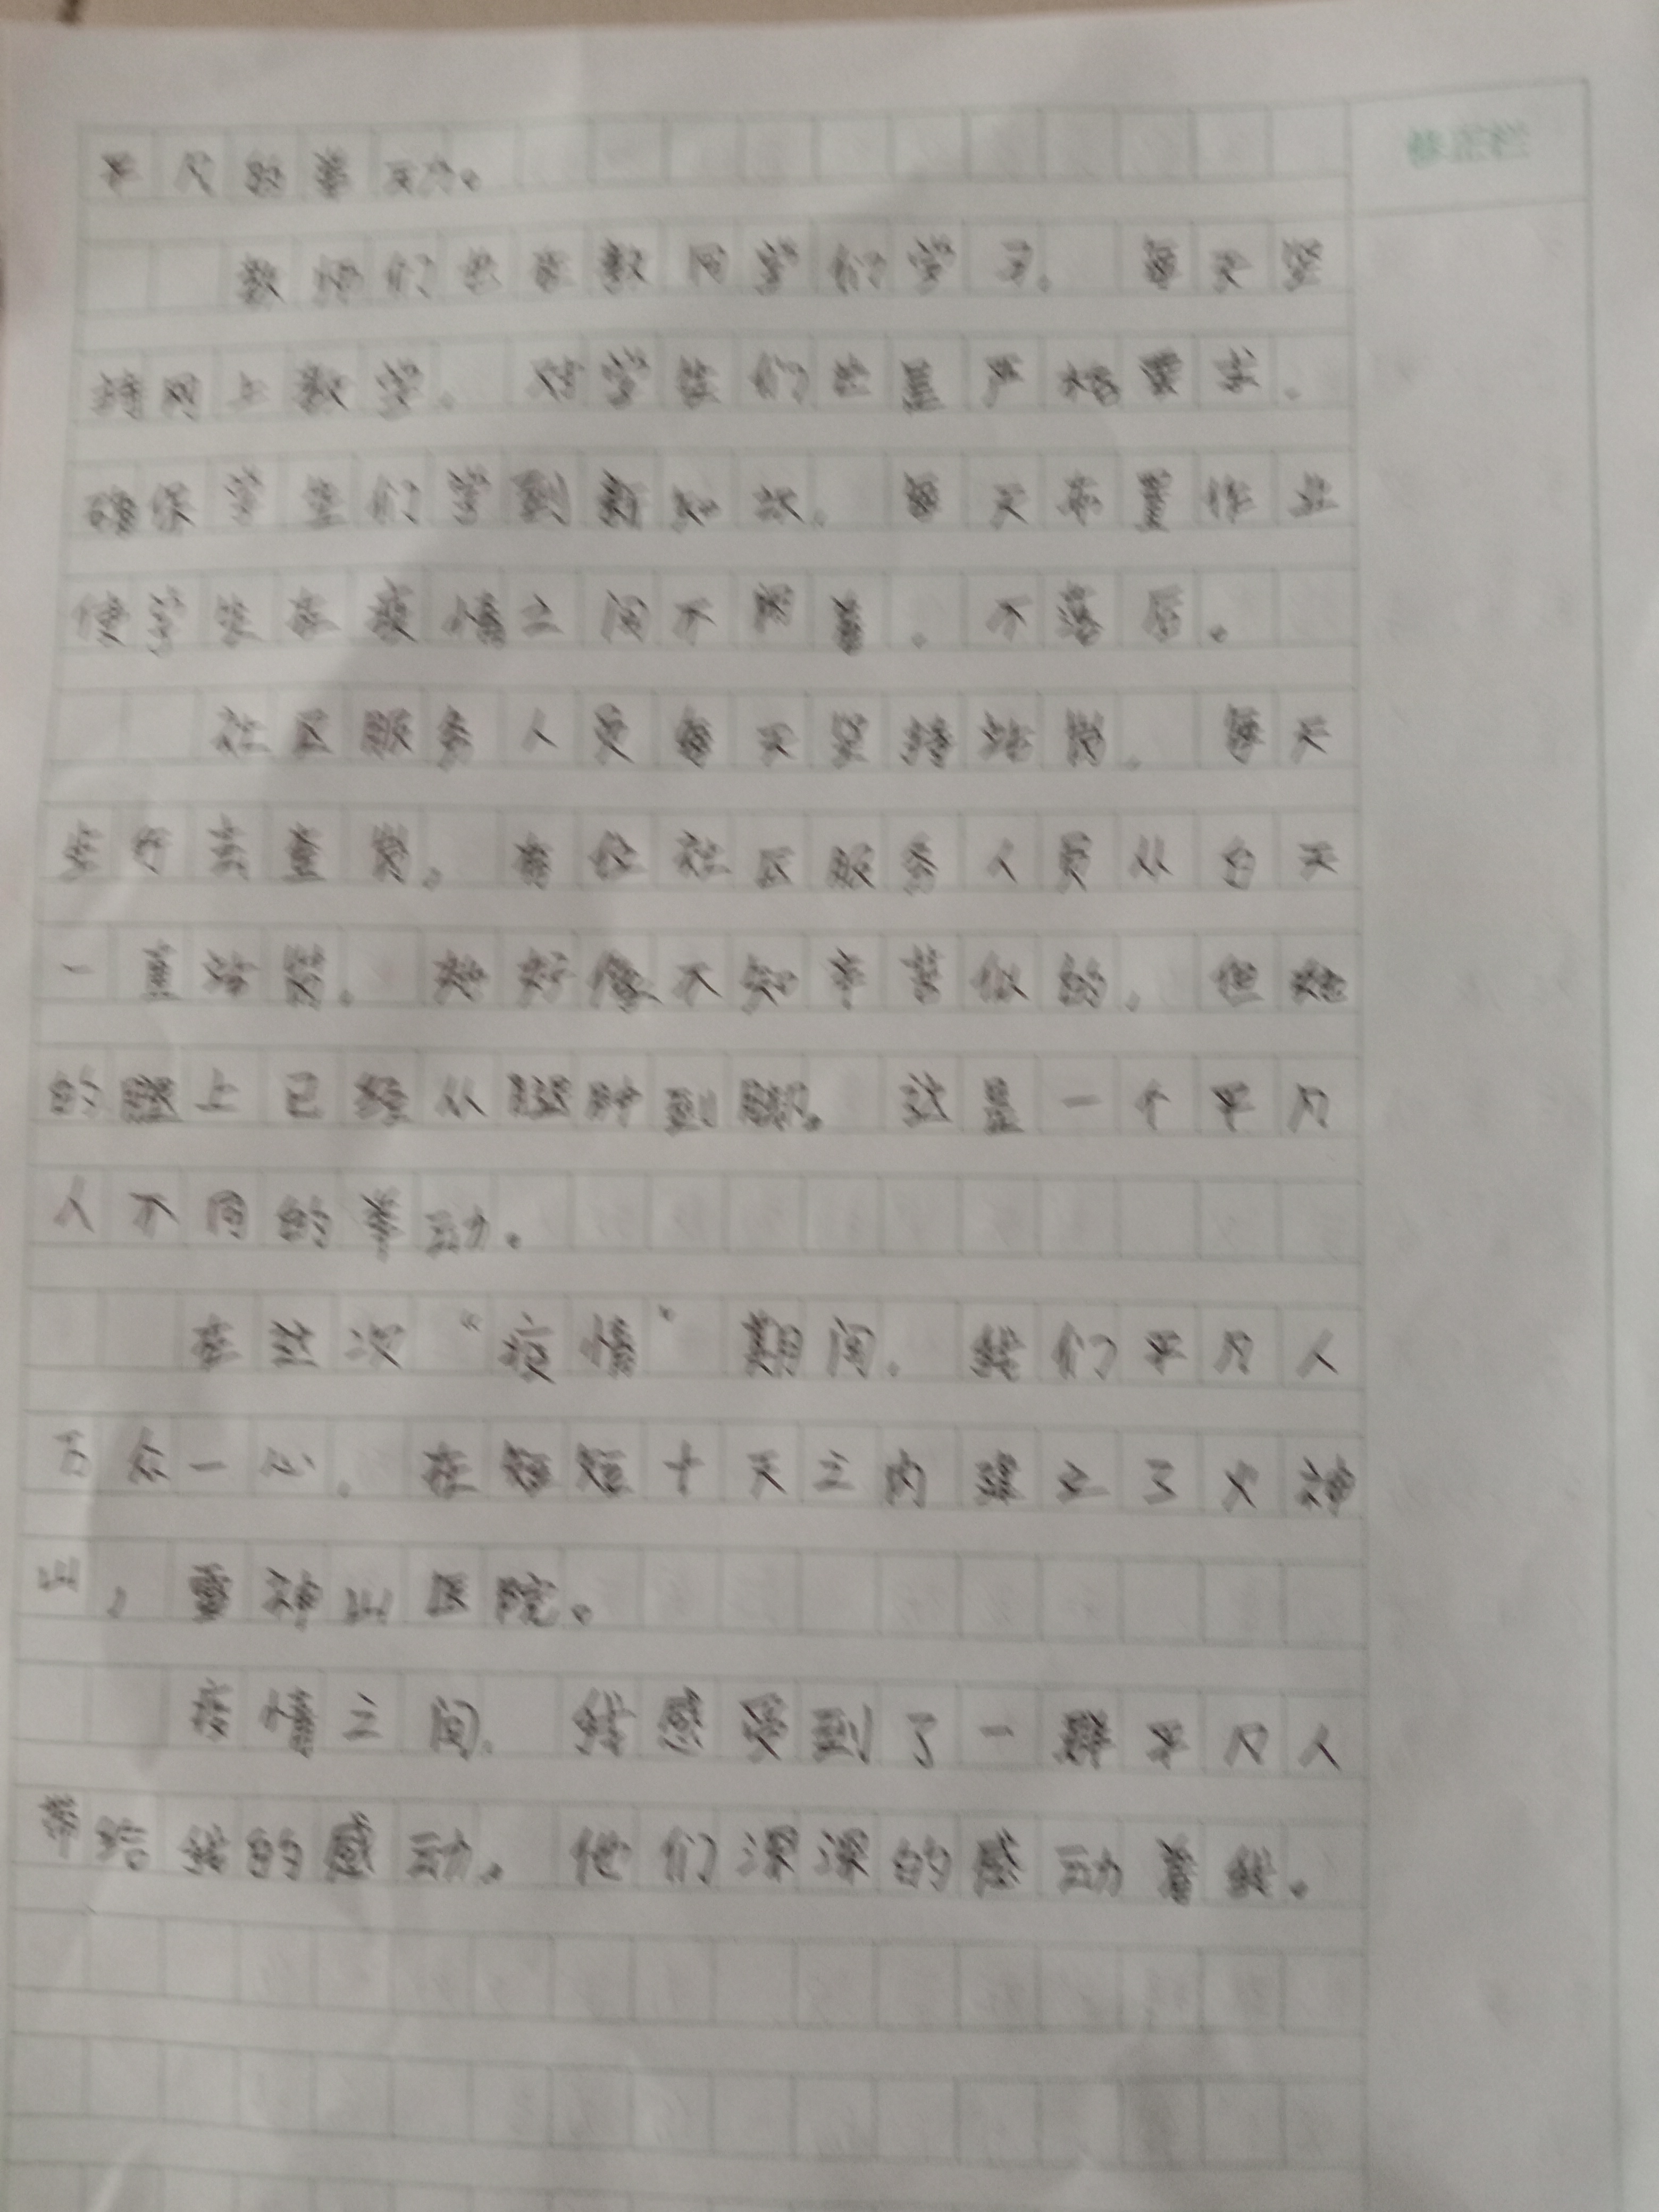 平凡的举动。
修正栏
教师们也在教同学们学习。每天坚
持网上教学。对学生们也是严格要求。
确保学生们学到新知识。每天布置作业
使学生在疫情之间不闲着。不落后。
社区服务人员每天坚持站岗。每天
去查岗。有位社区服务人员从白天
一直站岗。她好像不知辛苦似的。但她
的腿上已经从腿肿到脚。这是一个平凡
人不同的举动。
在这次“疫情”期间。我们平凡人
万众一心。在短短十天之内建立了火神
山，雷神山医院。
疫情之间。我感受到了一群平凡人
带给我的感动。他们深深的感动着我。